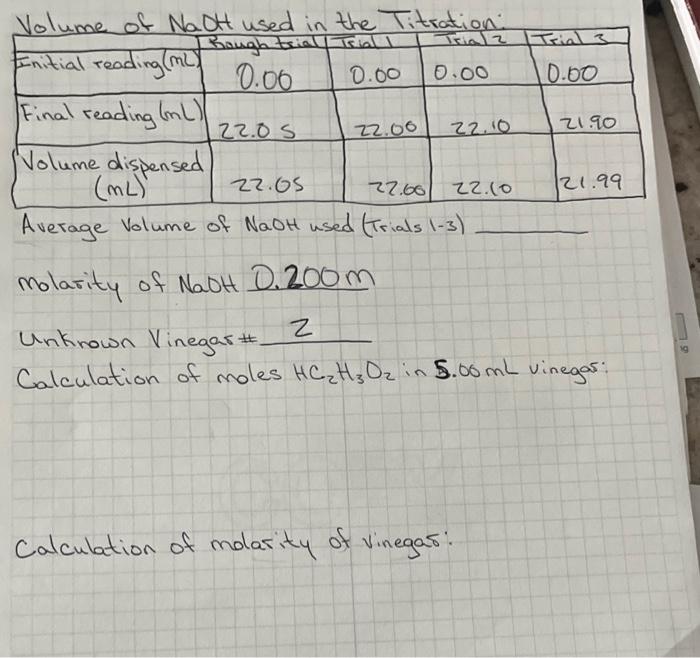 Volume of NaOH used in the Titration:
Rough trial Trial 1 Trial 2 Trial 3
Initial reading (mL) 0.00 0.00 0.00 0.00
Final reading (mL) 22.05 22.00 22.10 21.90
Volume dispensed (mL) 22.05 22.00 22.10 21.99
Average Volume of NaOH used (Trials 1-3)
molarity of NaOH 0.200m
Unknown Vinegar # 2
Calculation of moles HC₂H₃O₂ in 5.00mL vinegar:
Calculation of molarity of vinegar: